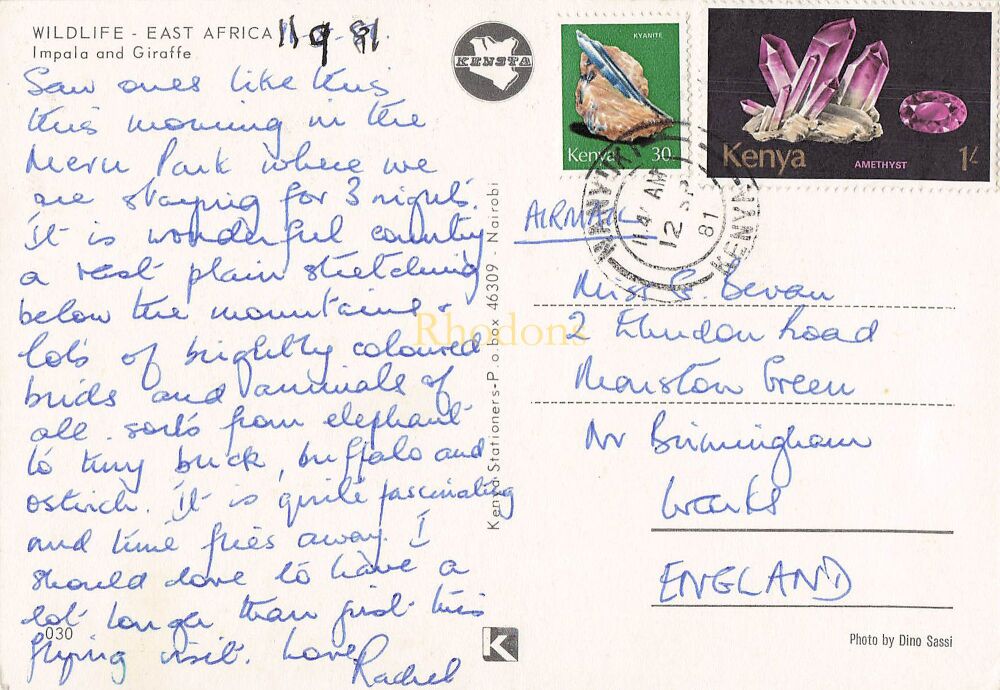 WILDLIFE - EAST AFRICA
11 9 81
Impala and Giraffe
Saw ones like this
this morning in the
Meru Park where we
are staying for 3 nights.
It is wonderful country
a vast plain stretching
below the mountains &
lots of brightly coloured
birds and animals of
all sorts from elephant
to tiny buck, buffalo and
ostrich. It is quite fascinating
and time flies away. I
should love to have a
lot longer than just this
flying visit. Love
Rachel
030
KENSTA
Kenya Stationers-P.o.box 46309 - Nairobi
KYANITE
Kenya 30
Kenya AMETHYST 1/-
NANYUKI
AM
12 SP
81
KENYA
AIRMAIL
Miss G. Bevan
2 Elmdon Road
Marston Green
Nr Birmingham
Warks
ENGLAND
Photo by Dino Sassi
K
Rhodons